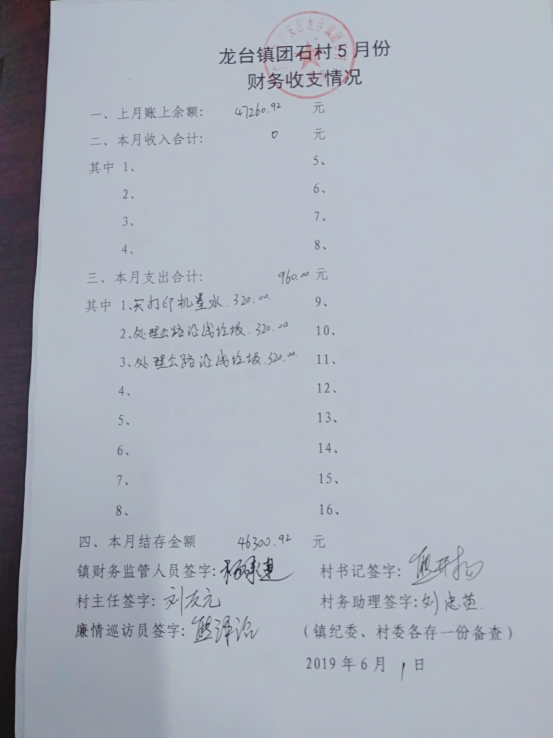 龙台镇团石村5月份
财务收支情况
一、上月账上余额: 47260.92 元
二、本月收入合计: 0 元
其中 1、 5、
2、 6、
3、 7、
4、 8、
三、本月支出合计: 960.00 元
其中 1、买打印机墨水.320.00 9、
2、处理公路沿线垃圾.320.00 10、
3、处理公路沿线垃圾.320.00 11、
4、 12、
5、 13、
6、 14、
7、 15、
8、 16、
四、本月结存金额 46300.92 元
镇财务监管人员签字: 村书记签字:
村主任签字: 刘友元 村务助理签字: 刘
廉情巡访员签字: 熊泽 (镇纪委、村委各存一份备查)
2019年6月1日